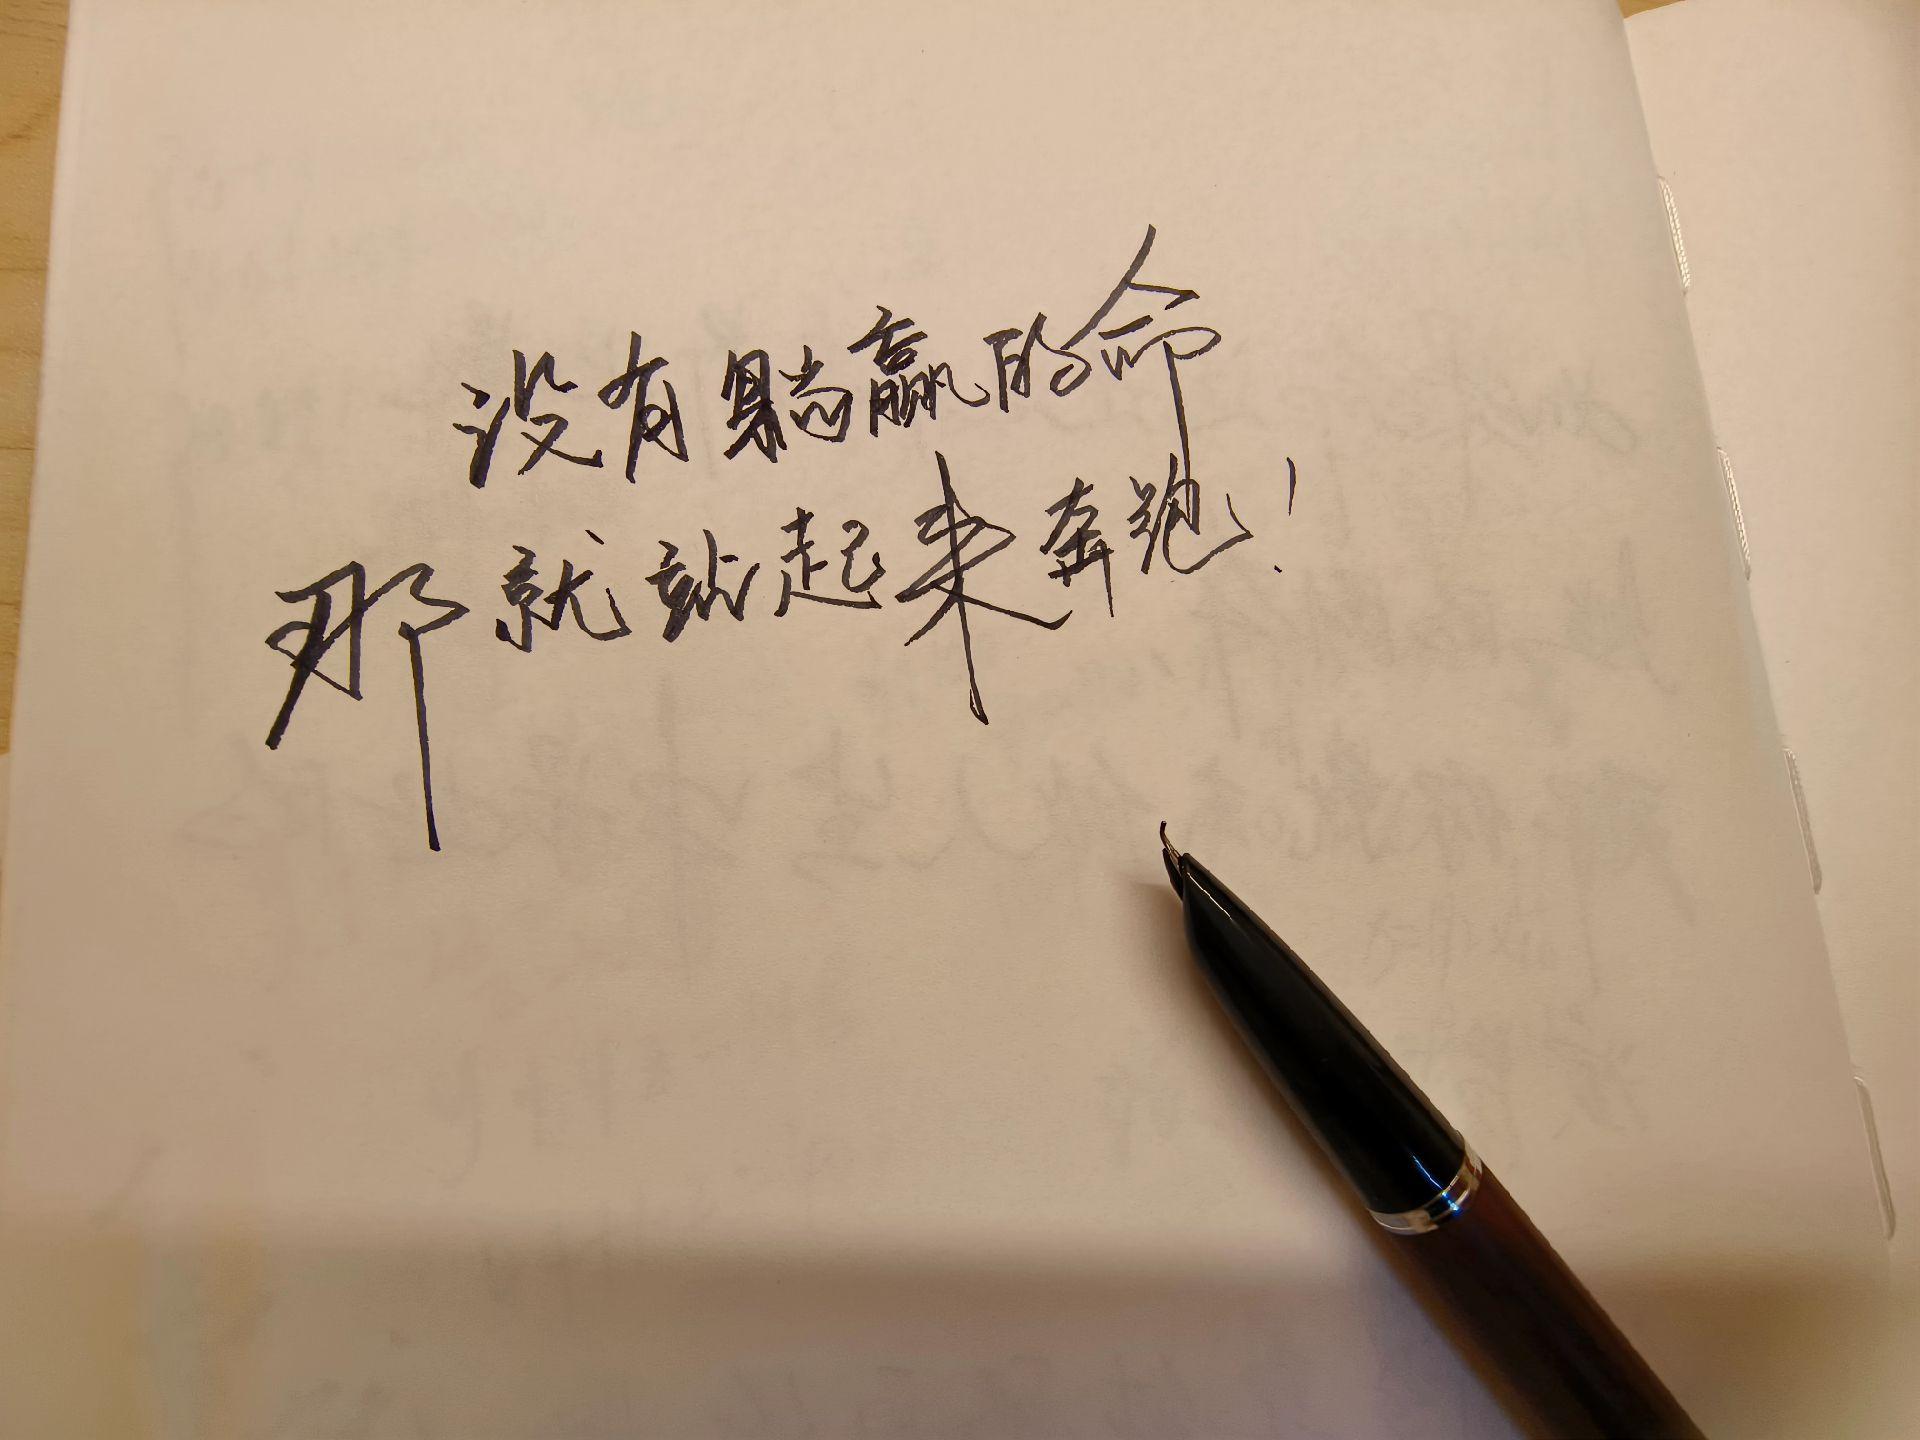 没有躺赢的命
那就站起来奔跑!